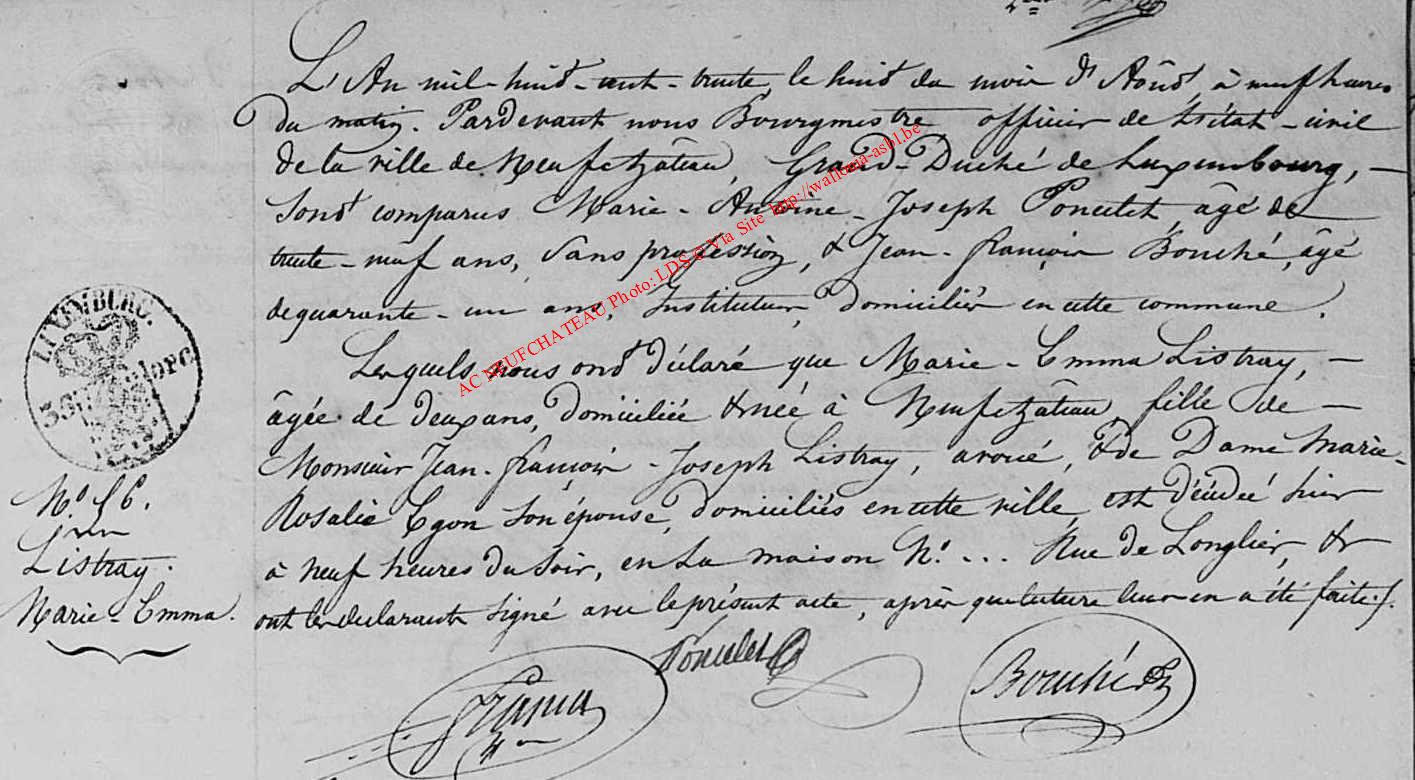 L'An mil-huit-cent-trente, le huit du mois d'Août, à neuf heures
du matin. Pardevant nous Bourgmestre officier de l'état-civil
de la ville de Neufchâteau, Grand-Duché de Luxembourg, —
Sont comparus Marie-Antoine-Joseph Poncelet, âgé de
trente-neuf ans, Sans profession, & Jean-françois Bouché, âgé
de quarante-un ans, Instituteur, domiciliés en cette commune.
Lesquels nous ont déclaré que Marie-Emma Listray, —
âgée de deux ans, domiciliée & née à Neufchâteau, fille de —
Monsieur Jean-françois-Joseph Listray, avoué, & de Dame Marie-
Rosalie Egon Son épouse, domiciliés en cette ville, est décédée hier
à neuf heures du soir, en Sa maison N.° ... Rue de Longlier, &
ont les déclarants signé avec le présent acte, après que lecture leur en a été faite ./.
Poncelet
Bouché
LUXEMBURG.
N.° 56.
Listray.
Marie-Emma.
AC NEUFCHATEAU Photo: LDS - Via Site http://wallonia-asbl.be